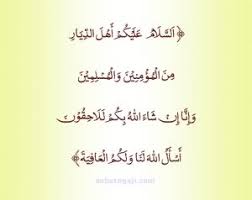 ﴿اَلسَّلَامُ عَلَيْكُمْ أَهْلَ الدِّيَارِ
مِنَ الْمُؤْمِنِيْنَ وَالْمُسْلِمِيْنَ
وَإِنَّا إِنْ شَاءَ اللهُ بِكُمْ لَلَاحِقُوْنَ
أَسْأَلُ اللهَ لَنَا وَلَكُمُ الْعَافِيَةَ﴾